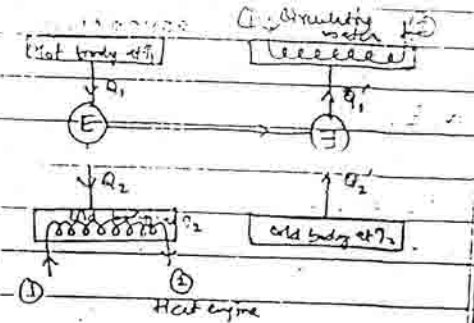 ① Circulating water ②
Hot body at T₁
Q₁
Q₁'
E
E
Q₂
Q₂'
T₂
cold body at T₂
① ②
Heat engine